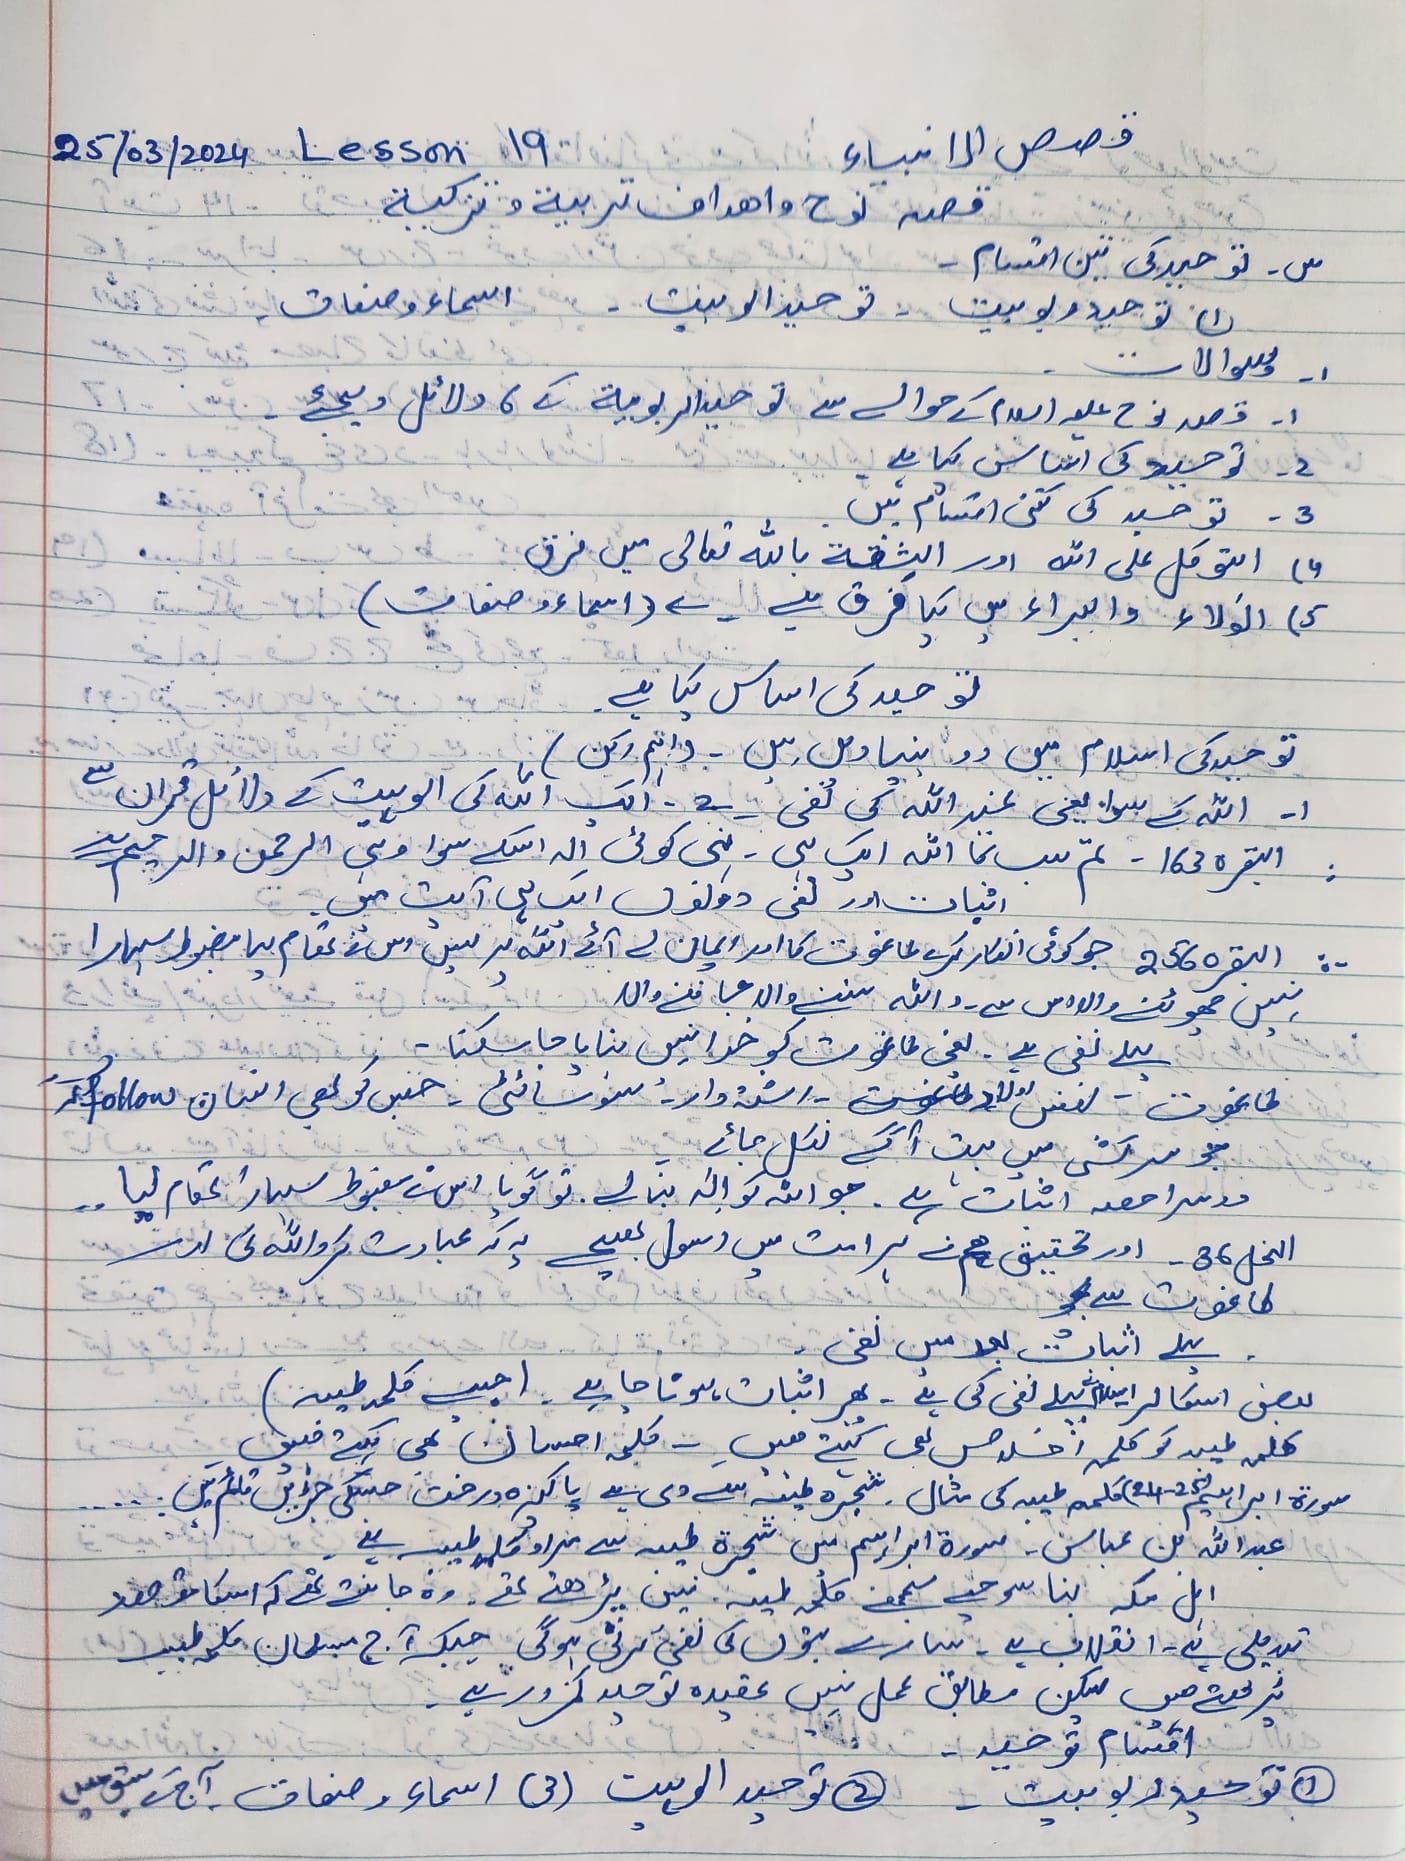 قصص الانبیاء Lesson 19 25/03/2024
قصہ نوح و اھداف تربیة و تزکیة
س۔ توحید کی تین اقسام۔
(۱) توحید ربوبیت ۔ توحید الوہیت ۔ اسماء و صفات۔
۱۔ سوالات ۔
۱۔ قصہ نوح علیہ السلام کے حوالے سے توحید الربوبیة کے ۶ دلائل دیجئے ۔
2۔ توحید کی اساس کیا ہے
3۔ توحید کی کتنی اقسام ہیں
۴) التوکل علی اللہ اور الثقة باللہ تعالی میں فرق
۵) الولاء والبراء میں کیا فرق ہے ۔ (اسماء و صفات)
توحید کی اساس کیا ہے۔
توحید کی اسلام میں دو بنیادیں ہیں ۔ (اہم رکن)
۱۔ اللہ کے سوا یعنی غیر اللہ کی نفی ۔ 2 ۔ ایک اللہ کی الوہیت کے دلائل قرآن سے
: البقرہ 163 ۔ تم سب کا اللہ ایک ہی ۔ نہیں کوئی الہ اسکے سوا وہی الرحمن والرحیم ہے
اثبات اور نفی دونوں ایک ہی آیت میں۔
البقرہ 256 جو کوئی انکار کرے طاغوت کا اور ایمان لے آئے اللہ پر پس اس نے تھام لیا مضبوط سہارا
نہیں چھوٹنے والا اس سے۔ واللہ سننے والا جاننے والا
پہلے نفی ہے ۔ یعنی طاغوت کو خدا نہیں بنایا جا سکتا ۔
طاغوت ۔ نفس اولاد ۔ رشتہ دار ۔ سوسائٹی ۔ جنہیں کو بھی انسان follow کرے
جو سرکشی میں بہت آگے نکل جائے
دوسرا حصہ اثبات ہے ۔ جو اللہ کو الٰہ بنا لے۔ تو گویا اس نے مضبوط سہارا تھام لیا ۔۔
النحل 36۔ اور تحقیق ہم نے ہر امت میں رسول بھیجے یہ کہ عبادت کرو اللہ کی اور
طاغوت سے بچو
۔ پہلے اثبات بعد میں نفی ۔
بعض اسکالر اسلام پہلے نفی کی ہے ۔ پھر اثبات ہونا چاہیے ۔ (جیسے کلمہ طیبہ)
کلمہ طیبہ کو کلمہ اخلاص بھی کہتے ہیں ۔ کلمہ احسان بھی کہتے ہیں
سورة ابراہیم (24-25) کلمہ طیبہ کی مثال ۔ شجرہ طیبہ سے دی ہے پاکیزہ درخت جسکی جڑیں قائم ہیں .....
عبداللہ بن عباس ۔ سورة ابراہیم میں شجرة طیبہ سے مراد کلمہ طیبہ ہے ۔
اہل مکہ بنا سوچے سمجھے کلمہ طیبہ نہیں پڑھتے تھے۔ وہ جانتے تھے کہ اسکا مقصد
تبدیلی ہے۔ انقلاب ہے ۔ سارے بتوں کی نفی کرنی ہوگی جبکہ آج مسلمان کلمہ طیبہ
پڑھتے ہیں لیکن مطابق عمل نہیں عقیدہ توحید کمزور ہے ۔
اقسام توحید ۔
① توحید ربوبیت ۔ ② توحید الوہیت (3) اسماء و صفات ۔ آج کے سبق میں